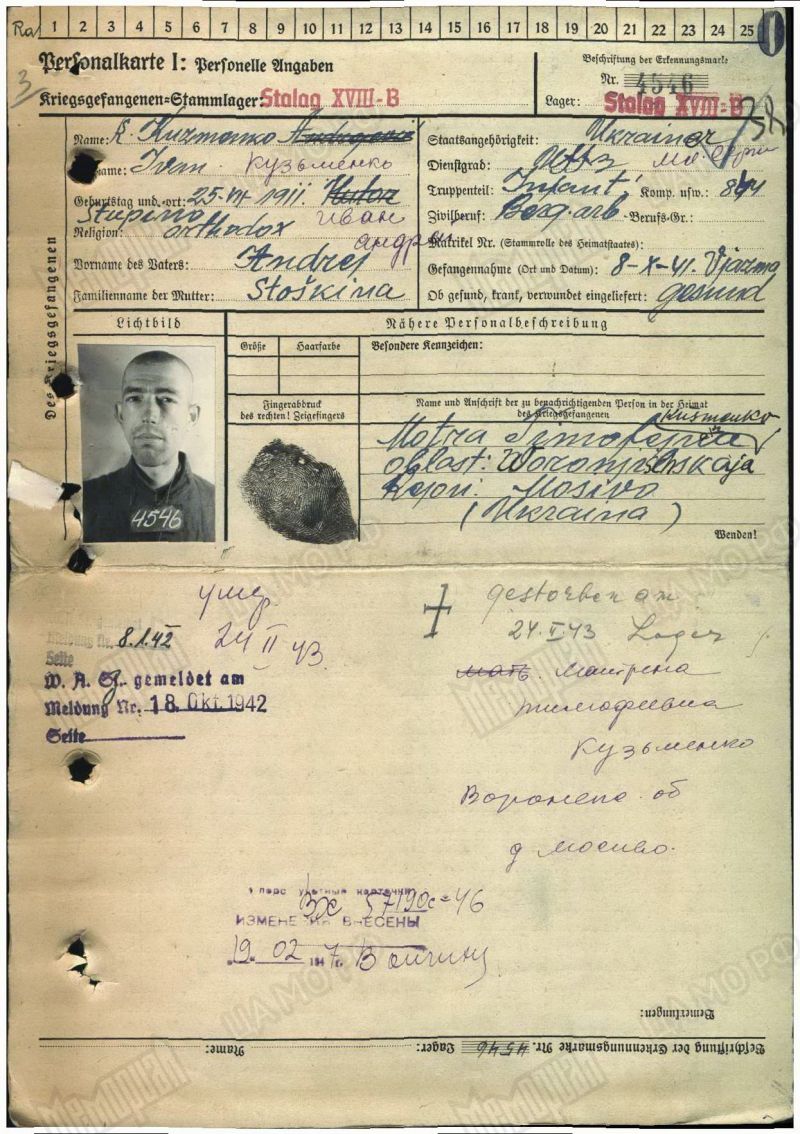 Ra 1 2 3 4 5 6 7 8 9 10 11 12 13 14 15 16 17 18 19 20 21 22 23 24 25
3
Personalkarte I: Personelle Angaben
Kriegsgefangenen-Stammlager: Stalag XVIII-B
Beschriftung der Erkennungsmarke
Nr. 4546
Lager: Stalag XVIII-B
Des Kriegsgefangenen
Name: K. Kuzmenko
Iwan Кузьменко
Geburtstag und -ort: 25-VI 1911.
Stupino Иван
Religion: orthodox
Vorname des Vaters: Andrej
Familienname der Mutter: Stoškina
Staatsangehörigkeit: Ukrainer
Dienstgrad: Uffz
Truppenteil: Infant. Komp. usw.: 844
Zivilberuf: Berg. arb Berufs-Gr.:
Matrikel Nr. (Stammrolle des Heimatstaates):
Gefangennahme (Ort und Datum): 8-X-41. Vjazma
Ob gesund, krank, verwundet eingeliefert: gesund
Lichtbild
Nähere Personalbeschreibung
Größe Haarfarbe Besondere Kennzeichen:
Fingerabdruck
des rechten! Zeigefingers
4546
Name und Anschrift der zu benachrichtigenden Person in der Heimat
des Kriegsgefangenen
Kusmenko
Motra
oblast:
Rejon: Mosivo
(Ukraina)
Wenden!
умер.
24 II 43.
Meldung Nr. 8.1.42
Seite
W. A. St. gemeldet am
Meldung Nr. 18. Okt. 1942
Seite
gestorben am
24. II 43 Lager
мать. Матрена
тимофеевна
Кузьменко
об
д Мосиво.
учетные карточки
Вх 57190с-46
ИЗМЕНЕНИЯ ВНЕСЕНЫ
19. 02 1947г.
Bemerkungen:
Beschriftung der Erkennungsmarke Nr. 4546 Lager: Name:
МЕМОРИАЛ
ЦАМО РФ